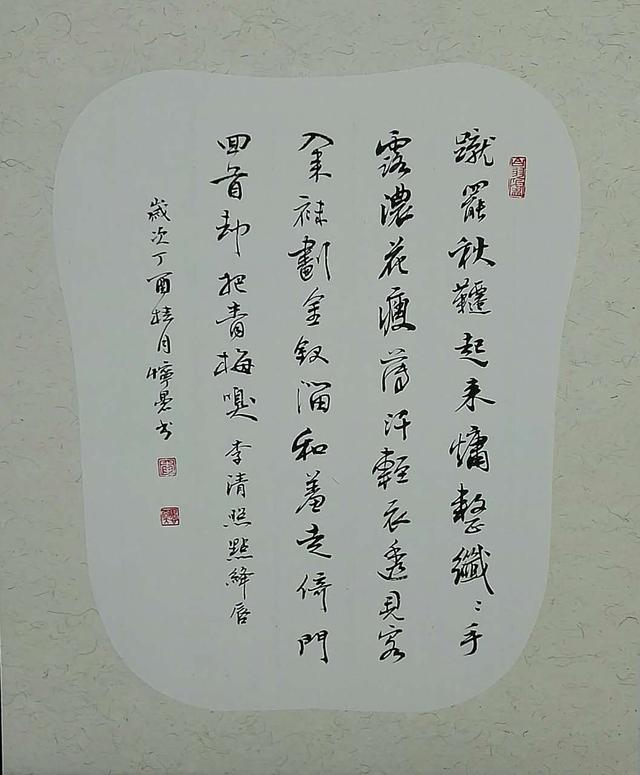 蹴罷秋韆起来慵整纖〻手
露濃花瘦薄汗輕衣透見客
入来袜劃金釵溜和羞走倚門
回首却把青梅嗅 李清照點絳唇
歲次丁酉桂月书